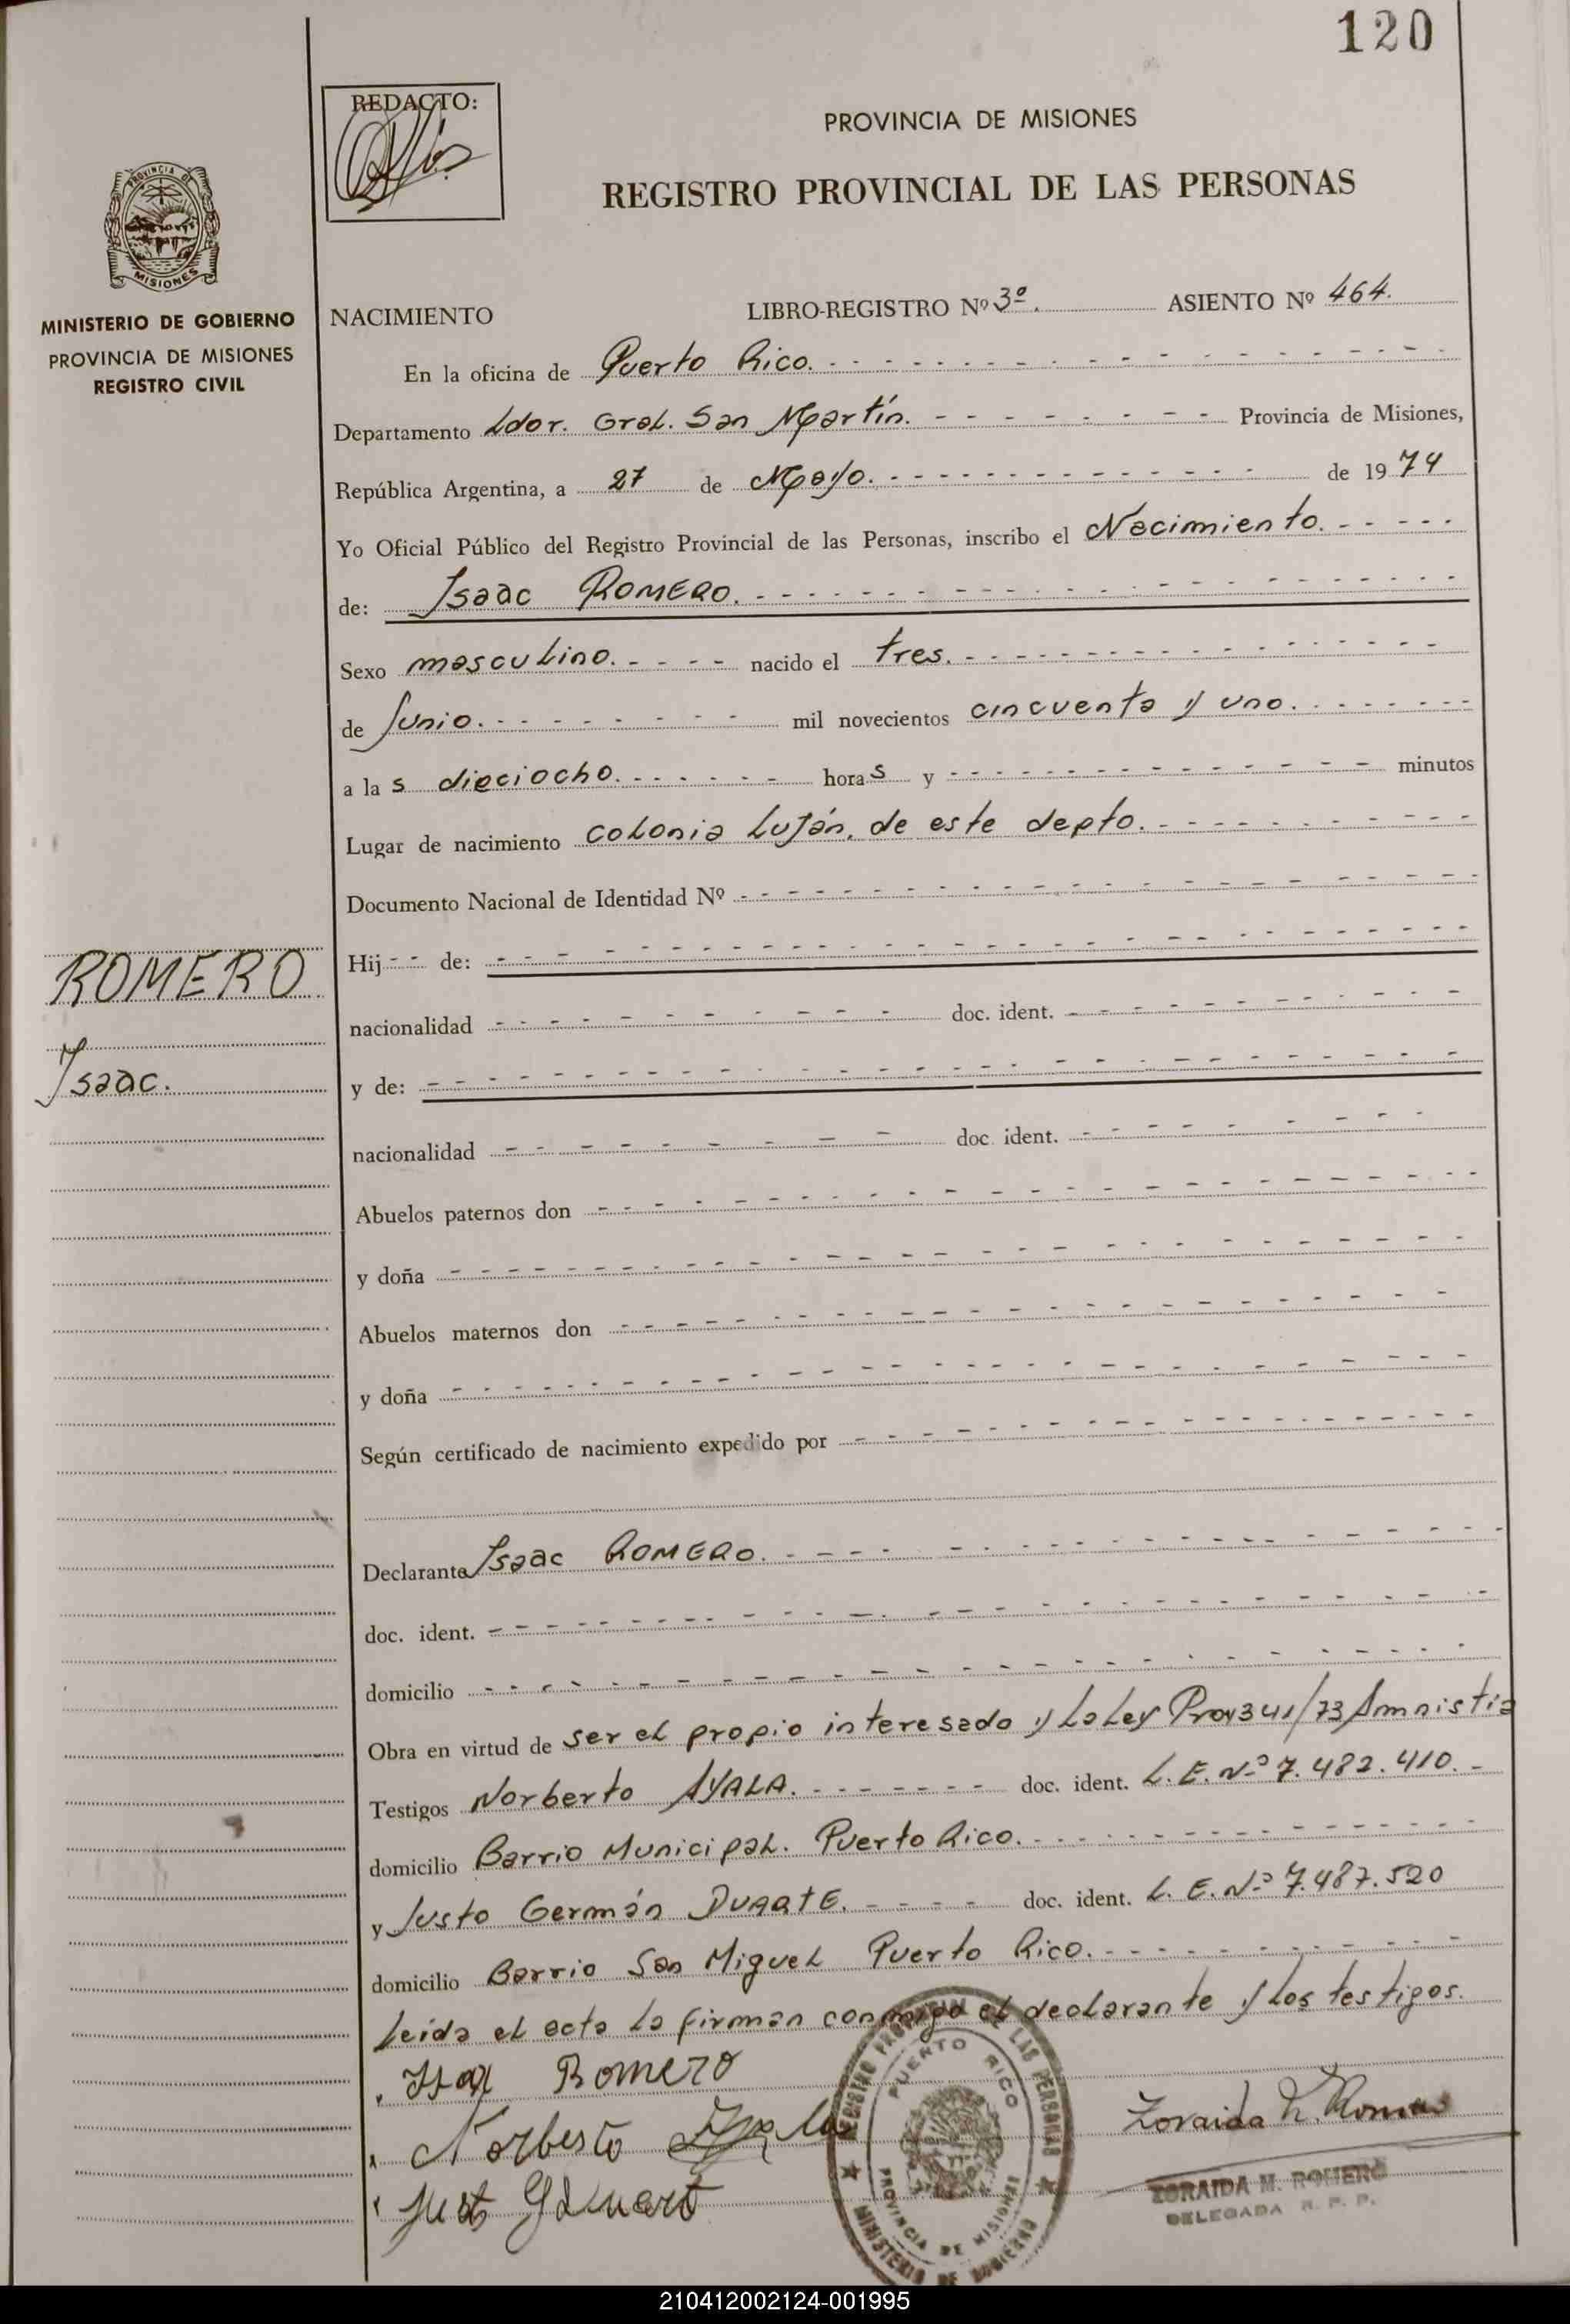 120
REDACTO:
PROVINCIA DE MISIONES
REGISTRO PROVINCIAL DE LAS PERSONAS
PROVINCIA DE
MISIONES
MINISTERIO DE GOBIERNO
PROVINCIA DE MISIONES
REGISTRO CIVIL
NACIMIENTO LIBRO-REGISTRO Nº 3º. ASIENTO Nº 464.
En la oficina de Puerto Rico.
Departamento Ldor. Gral. San Martín. Provincia de Misiones,
República Argentina, a 27 de Mayo. de 1974
Yo Oficial Público del Registro Provincial de las Personas, inscribo el Nacimiento.
de: Isaac ROMERO.
Sexo masculino. nacido el tres.
de Junio. mil novecientos cincuenta y uno.
a la s dieciocho. horas y minutos
Lugar de nacimiento colonia Luján, de este depto.
Documento Nacional de Identidad Nº
ROMERO
Isaac.
Hij de:
nacionalidad doc. ident.
y de:
nacionalidad doc. ident.
Abuelos paternos don
y doña
Abuelos maternos don
y doña
Según certificado de nacimiento expedido por
Declarante Isaac ROMERO.
doc. ident.
domicilio
Obra en virtud de ser el propio interesado y la Ley Prov 341/73 Amnistia
Testigos Norberto AYALA. doc. ident. L.E. Nº 7.482.410.
domicilio Barrio Municipal. Puerto Rico.
y Justo Germán DUARTE. doc. ident. L.E. Nº 7.487.520
domicilio Barrio San Miguel Puerto Rico.
Leída el acta la firman conmigo el declarante y los testigos.
Romero
Norberto Ayala
REGISTRO PROVINCIAL DE LAS PERSONAS
PUERTO RICO
PROVINCIA DE MISIONES
MINISTERIO DE GOBIERNO
Zoraida M. Romero
ZORAIDA M. ROMERO
DELEGADA R. P. P.
210412002124-001995